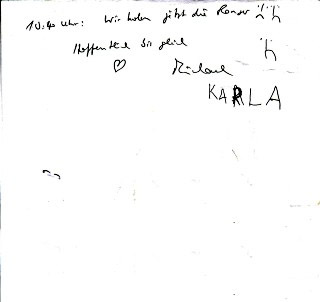 10:40 Uhr: Wir holen jetzt die
Hoffentlich bis gleich
♡ Michael
KARLA